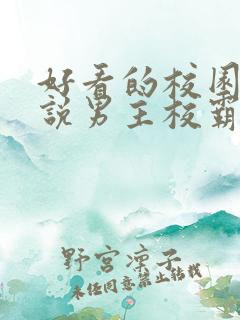 好看的校园
說男主校霸
野宮凜子
未经同意禁止转载